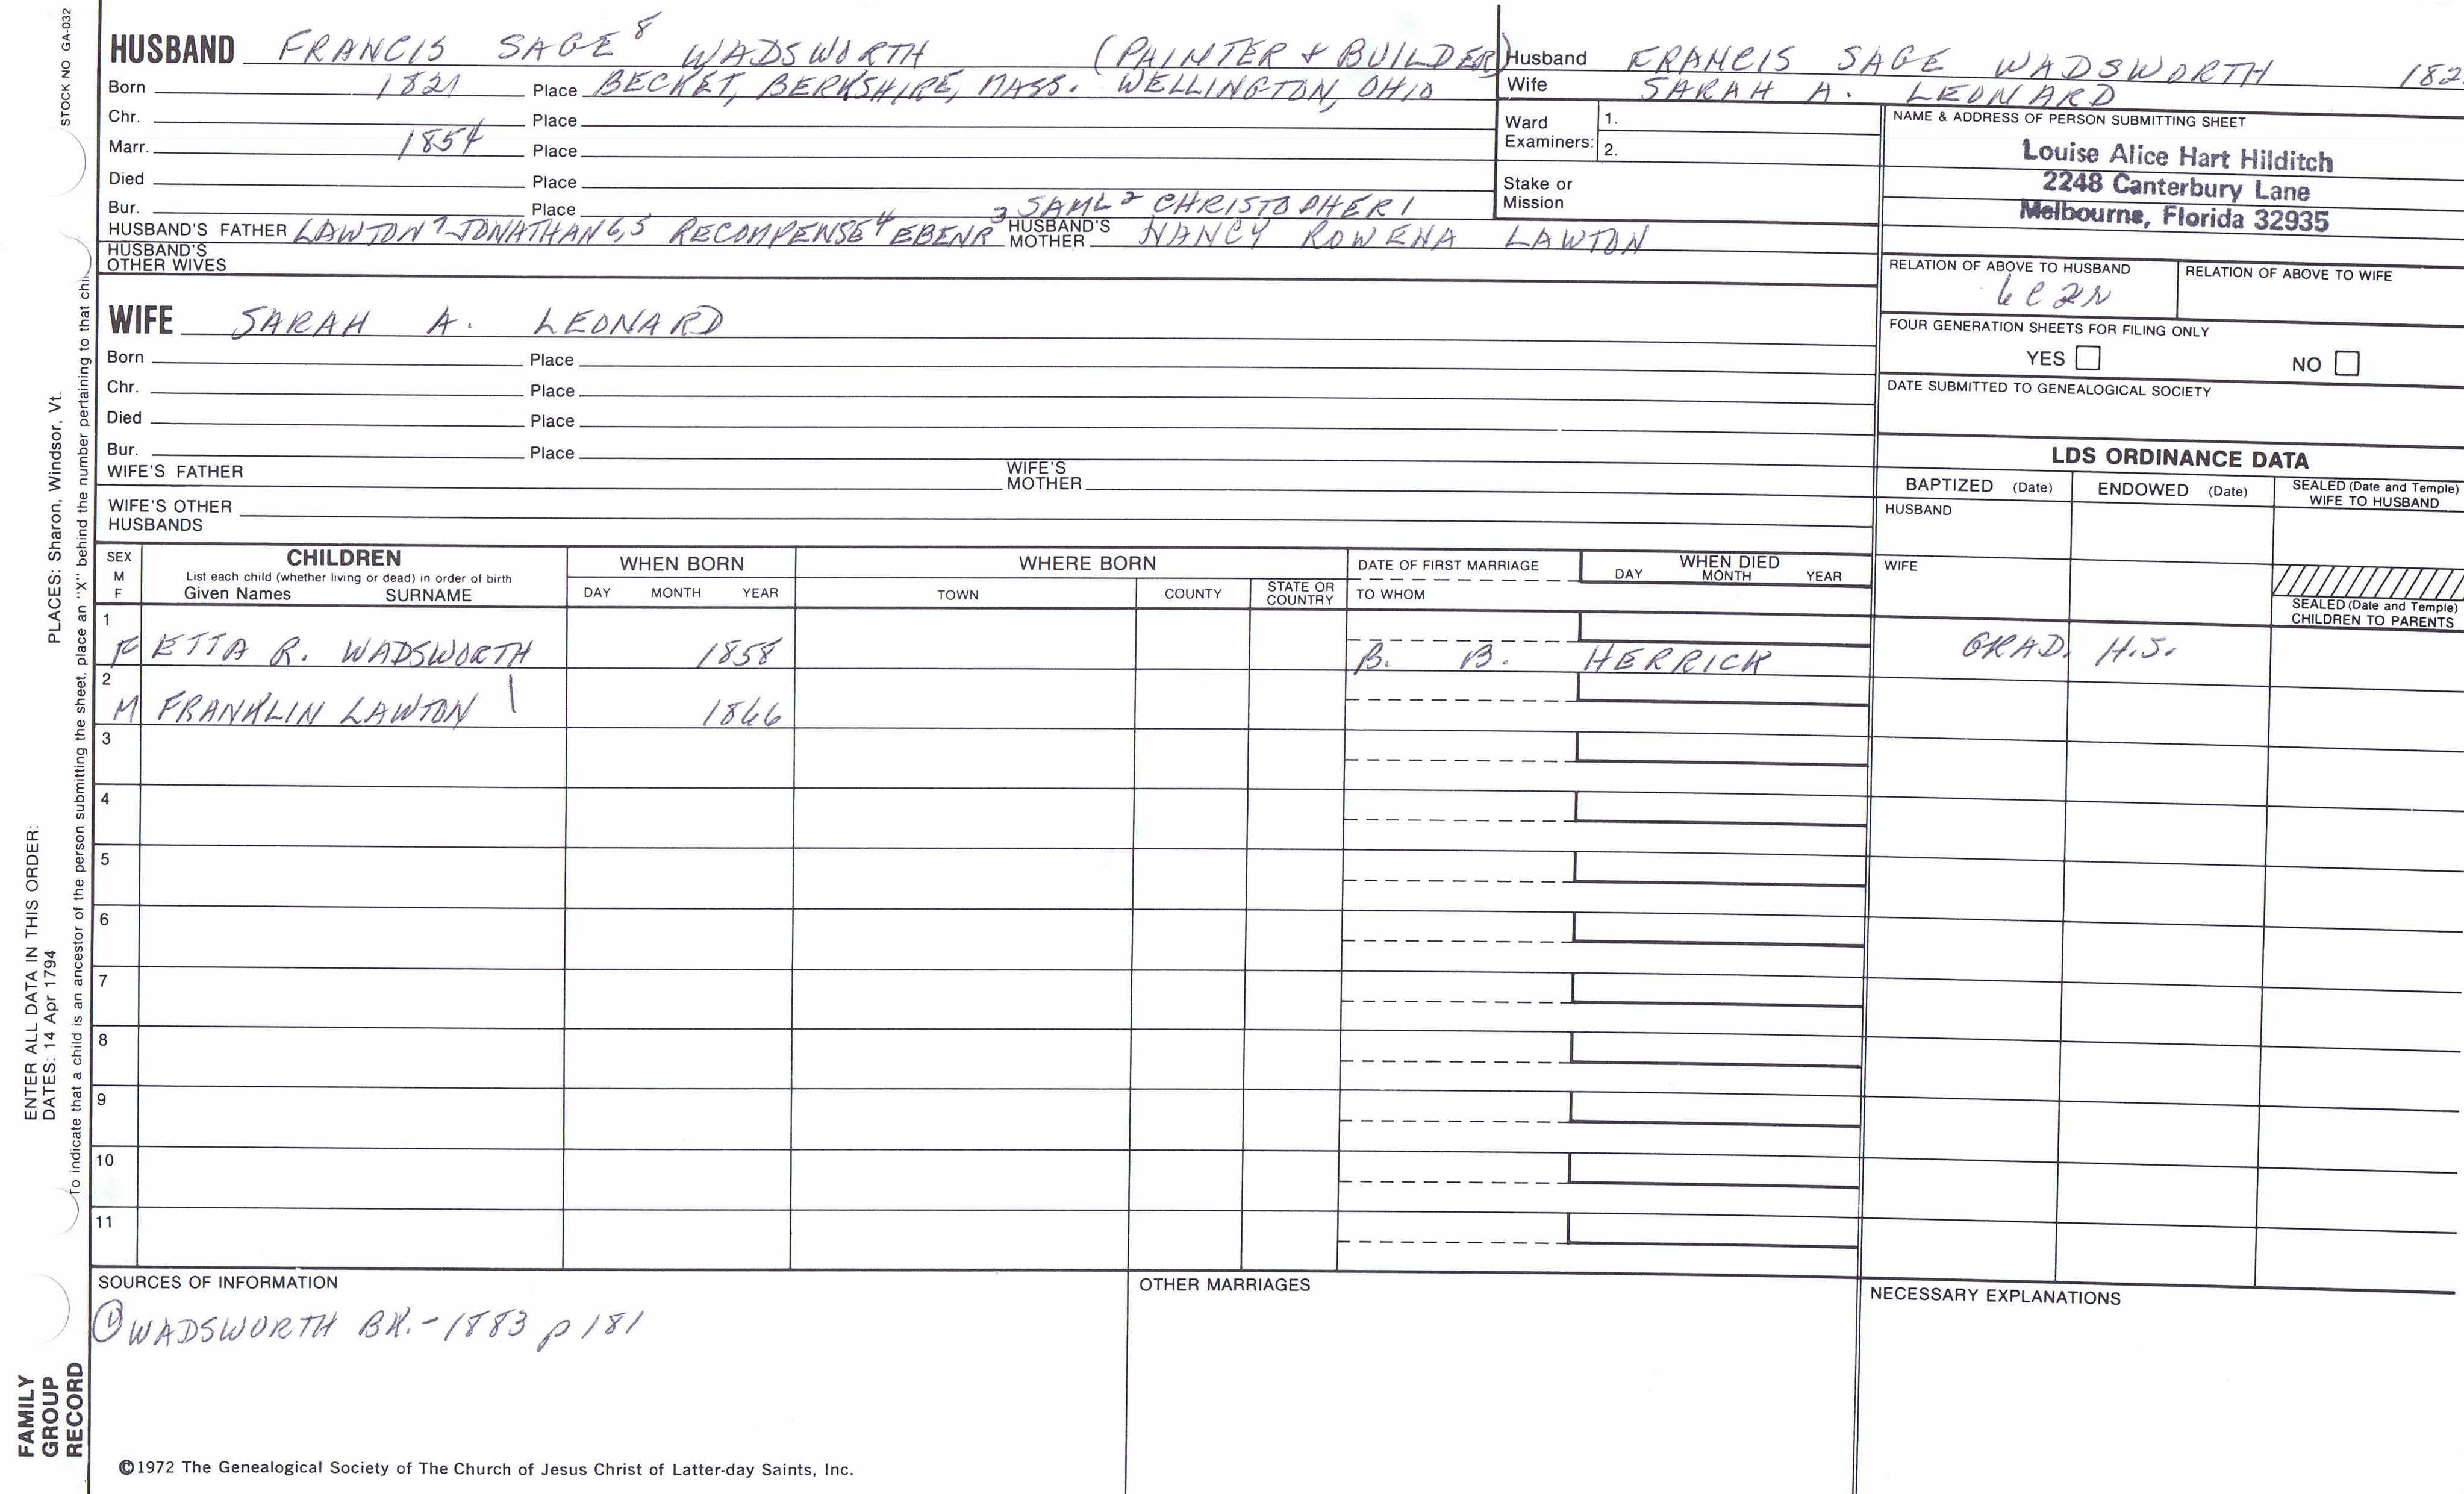 STOCK NO GA-032
HUSBAND FRANCIS SAGE 8 WADSWORTH (PAINTER & BUILDER)
Born 1821 Place BECKET, BERKSHIRE, MASS. WELLINGTON, OHIO
Chr. Place
Marr. 1854 Place
Died Place
Bur. Place 3 SAML 2 CHRISTOPHER 1
HUSBAND'S FATHER LAWTON 7 JONATHAN 6,5 RECOMPENSE 4 EBENR HUSBAND'S MOTHER NANCY ROWENA LAWTON
HUSBAND'S OTHER WIVES
Husband FRANCIS SAGE WADSWORTH 182
Wife SARAH A. LEONARD
Ward Examiners: 1.
2.
Stake or Mission
NAME & ADDRESS OF PERSON SUBMITTING SHEET
Louise Alice Hart Hilditch
2248 Canterbury Lane
Melbourne, Florida 32935
RELATION OF ABOVE TO HUSBAND RELATION OF ABOVE TO WIFE
6C2R
FOUR GENERATION SHEETS FOR FILING ONLY
YES NO
DATE SUBMITTED TO GENEALOGICAL SOCIETY
WIFE SARAH A. LEONARD
Born Place
Chr. Place
Died Place
Bur. Place
WIFE'S FATHER WIFE'S MOTHER
WIFE'S OTHER HUSBANDS
LDS ORDINANCE DATA
BAPTIZED (Date) ENDOWED (Date) SEALED (Date and Temple) WIFE TO HUSBAND
HUSBAND
WIFE
SEALED (Date and Temple) CHILDREN TO PARENTS
SEX M F CHILDREN WHEN BORN WHERE BORN DATE OF FIRST MARRIAGE WHEN DIED
List each child (whether living or dead) in order of birth
Given Names SURNAME DAY MONTH YEAR TOWN COUNTY STATE OR COUNTRY TO WHOM DAY MONTH YEAR
1 F ETTA R. WADSWORTH 1858 B. B. HERRICK GRAD. H.S.
2 M FRANKLIN LAWTON | 1866
3
4
5
6
7
8
9
10
11
SOURCES OF INFORMATION
① WADSWORTH BK. - 1883 p 181
OTHER MARRIAGES
NECESSARY EXPLANATIONS
©1972 The Genealogical Society of The Church of Jesus Christ of Latter-day Saints, Inc.
FAMILY GROUP RECORD
ENTER ALL DATA IN THIS ORDER:
DATES: 14 Apr 1794 PLACES: Sharon, Windsor, Vt.
To indicate that a child is an ancestor of the person submitting the sheet, place an "X" behind the number pertaining to that chi